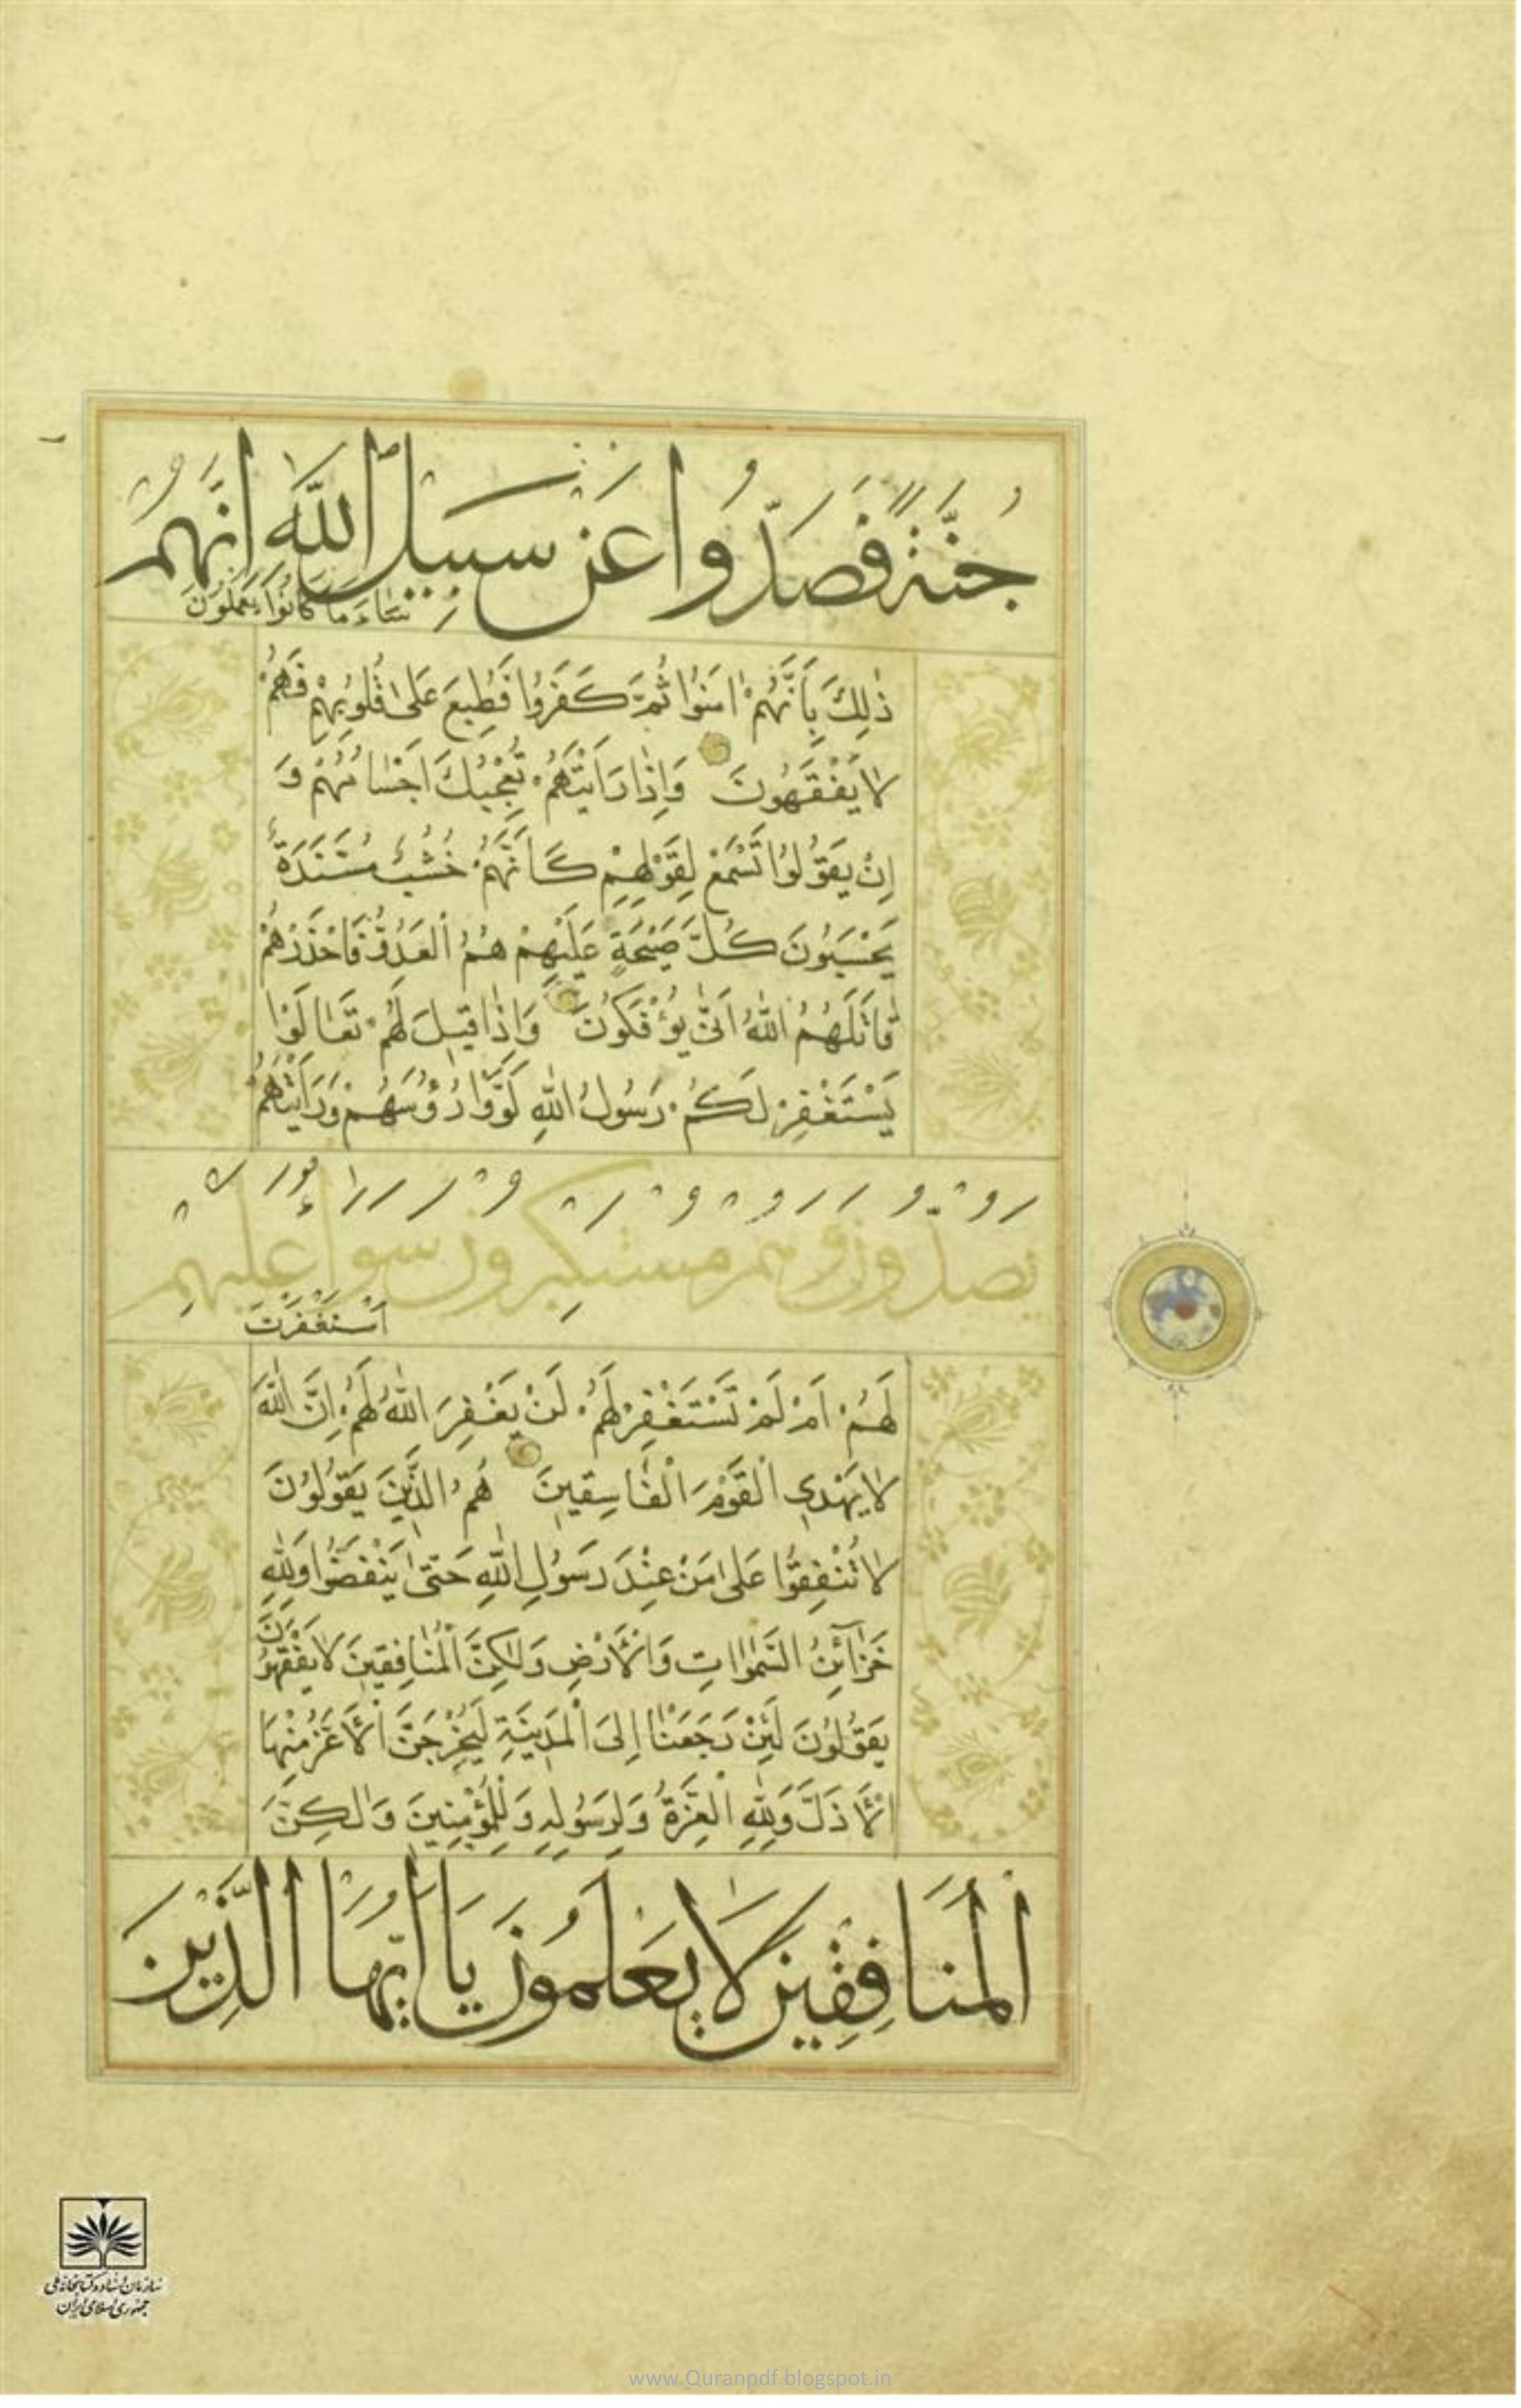 جُنَّةً فَصَدُّوا عَنْ سَبِيلِ اللَّهِ اِنَّهُمْ
سَاءَ مَا كَانُوا يَعْمَلُونَ
ذٰلِكَ بِاَنَّهُمْ اٰمَنُوا ثُمَّ كَفَرُوا فَطُبِعَ عَلٰى قُلُوبِهِمْ فَهُمْ
لَا يَفْقَهُونَ وَاِذَا رَاَيْتَهُمْ تُعْجِبُكَ اَجْسَامُهُمْ وَ
اِنْ يَقُولُوا تَسْمَعْ لِقَوْلِهِمْ كَاَنَّهُمْ خُشُبٌ مُسَنَّدَةٌ
يَحْسَبُونَ كُلَّ صَيْحَةٍ عَلَيْهِمْ هُمُ الْعَدُوُّ فَاحْذَرْهُمْ
قَاتَلَهُمُ اللّٰهُ اَنّٰى يُؤْفَكُونَ وَاِذَا قِيلَ لَهُمْ تَعَالَوْا
يَسْتَغْفِرْ لَكُمْ رَسُولُ اللّٰهِ لَوَّوْا رُؤُسَهُمْ وَرَاَيْتَهُمْ
يَصُدُّونَ وَهُمْ مُسْتَكْبِرُونَ سَوَاءٌ عَلَيْهِمْ
اَسْتَغْفَرْتَ
لَهُمْ اَمْ لَمْ تَسْتَغْفِرْ لَهُمْ لَنْ يَغْفِرَ اللّٰهُ لَهُمْ اِنَّ اللّٰهَ
لَا يَهْدِي الْقَوْمَ الْفَاسِقِينَ هُمُ الَّذِينَ يَقُولُونَ
لَا تُنْفِقُوا عَلٰى مَنْ عِنْدَ رَسُولِ اللّٰهِ حَتّٰى يَنْفَضُّوا وَلِلّٰهِ
خَزَآئِنُ السَّمٰوَاتِ وَالْاَرْضِ وَلٰكِنَّ الْمُنَافِقِينَ لَا يَفْقَهُونَ
يَقُولُونَ لَئِنْ رَجَعْنَا اِلَى الْمَدِينَةِ لَيُخْرِجَنَّ الْاَعَزُّ مِنْهَا
الْاَذَلَّ وَلِلّٰهِ الْعِزَّةُ وَلِرَسُولِهِ وَلِلْمُؤْمِنِينَ وَلٰكِنَّ
الْمُنَافِقِينَ لَا يَعْلَمُونَ يَا اَيُّهَا الَّذِينَ
سازمان اسناد و کتابخانه ملی
جمهوری اسلامی ایران
www.Quranpdf.blogspot.in